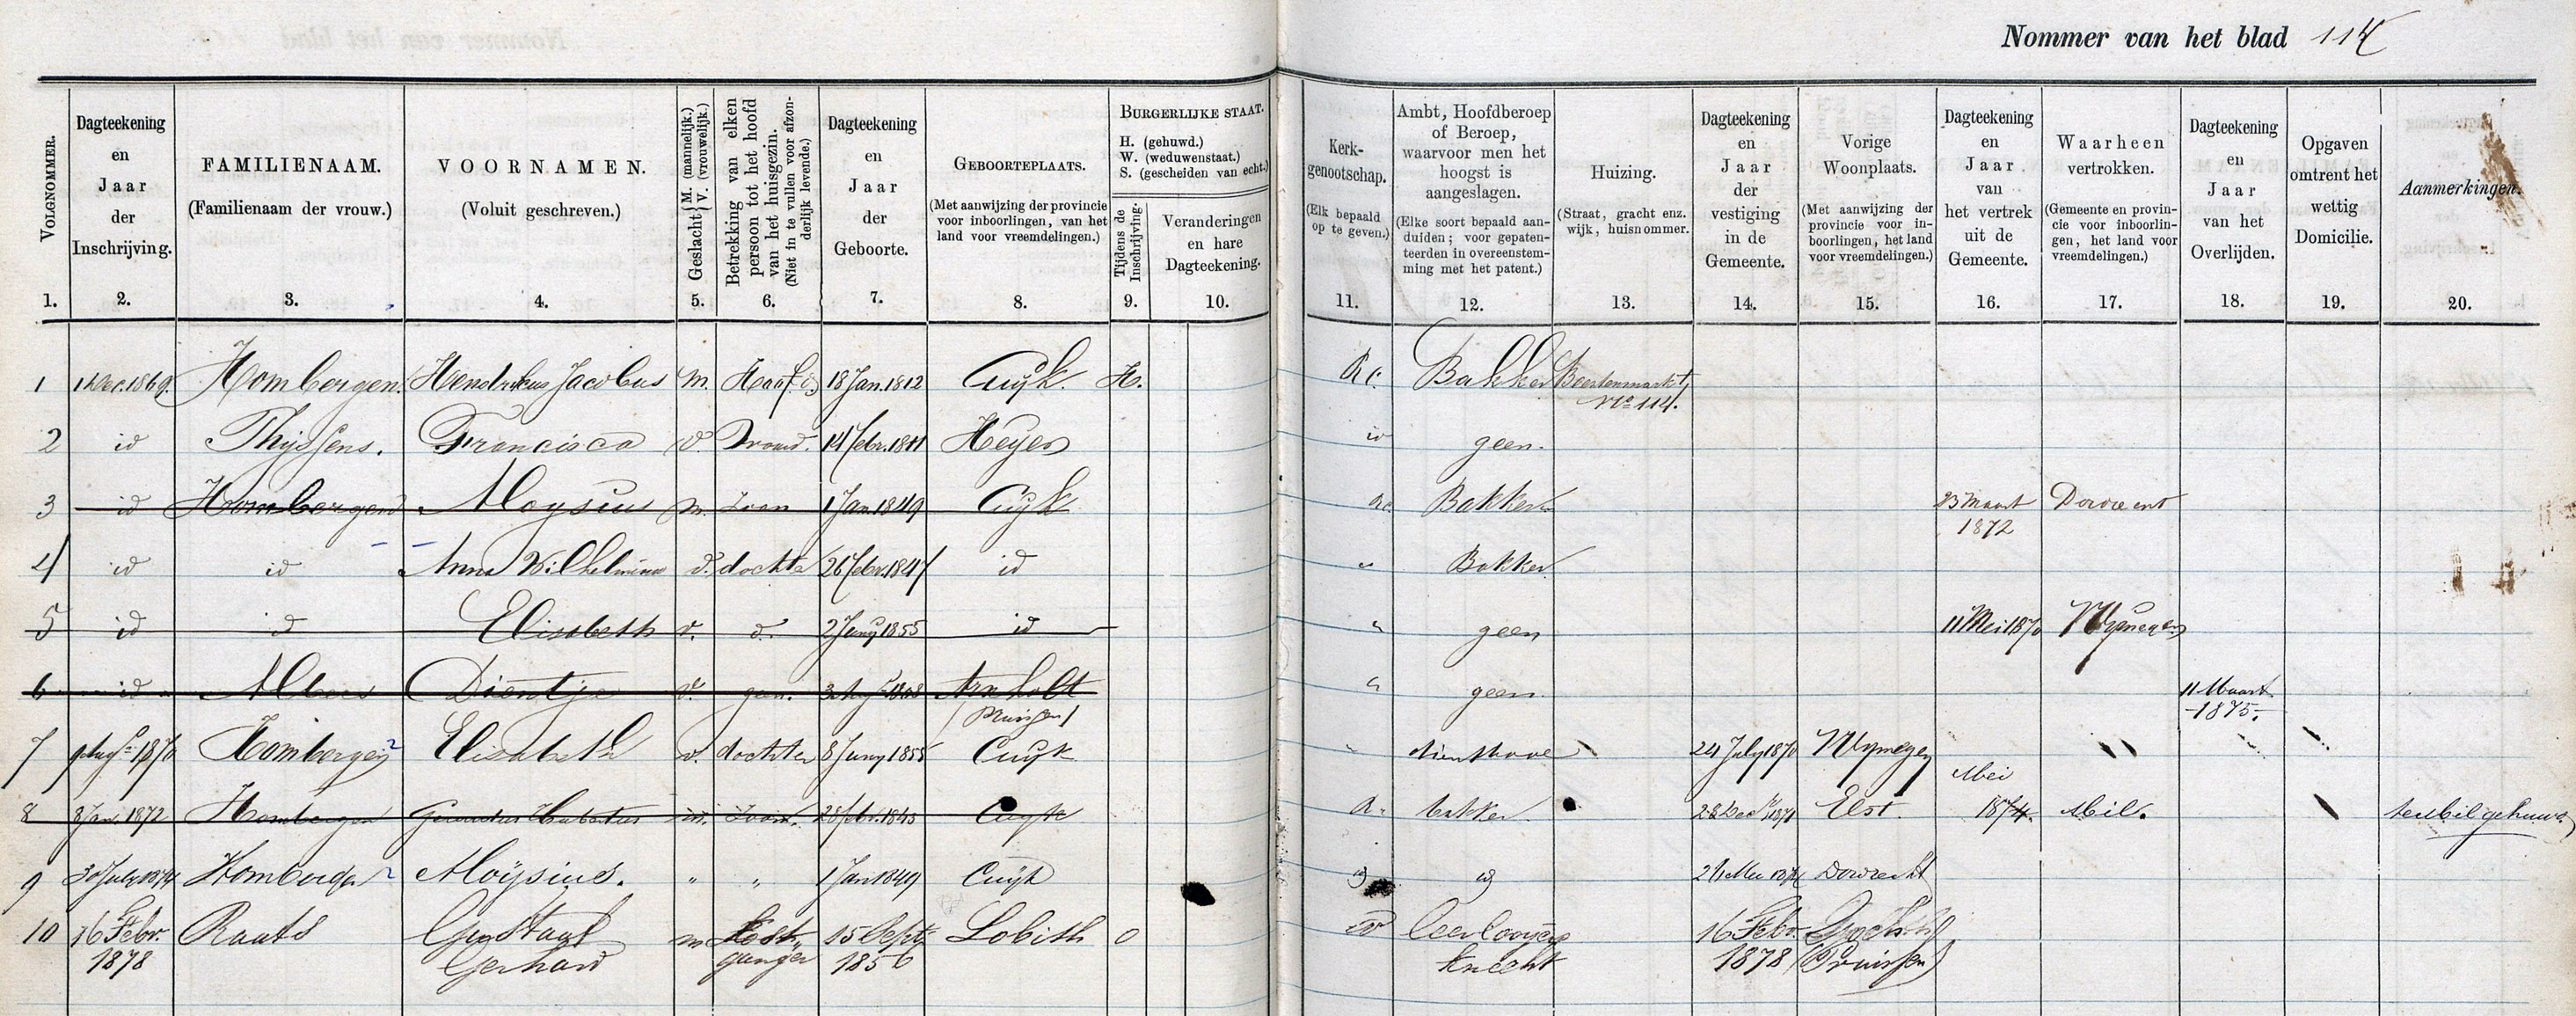 Nommer van het blad 114
VOLGNOMMER.
1.
Dagteekening
en
Jaar
der
Inschrijving.
2.
FAMILIENAAM.
(Familienaam der vrouw.)
3.
VOORNAMEN.
(Voluit geschreven.)
4.
Geslacht { M. (mannelijk.)
V. (vrouwelijk.)
5.
Betrekking van elken
persoon tot het hoofd
van het huisgezin.
(Niet in te vullen voor afzon-
derlijk levende.)
6.
Dagteekening
en
Jaar
der
Geboorte.
7.
GEBOORTEPLAATS.
(Met aanwijzing der provincie
voor inboorlingen, van het
land voor vreemdelingen.)
8.
BURGERLIJKE STAAT.
H. (gehuwd.)
W. (weduwenstaat.)
S. (gescheiden van echt.)
Tijdens de
Inschrijving.
9.
Veranderingen
en hare
Dagteekening.
10.
Kerk-
genootschap.
(Elk bepaald
op te geven.)
11.
Ambt, Hoofdberoep
of Beroep,
waarvoor men het
hoogst is
aangeslagen.
(Elke soort bepaald aan-
duiden; voor gepaten-
teerden in overeenstem-
ming met het patent.)
12.
Huizing.
(Straat, gracht enz.
wijk, huisnommer.)
13.
Dagteekening
en
Jaar
der
vestiging
in de
Gemeente.
14.
Vorige
Woonplaats.
(Met aanwijzing der
provincie voor in-
boorlingen, het land
voor vreemdelingen.)
15.
Dagteekening
en
Jaar
van
het vertrek
uit de
Gemeente.
16.
Waarheen
vertrokken.
(Gemeente en provin-
cie voor inboorlin-
gen, het land voor
vreemdelingen.)
17.
Dagteekening
en
Jaar
van het
Overlijden.
18.
Opgaven
omtrent het
wettig
Domicilie.
19.
Aanmerkingen.
20.
1 1 Dec. 1869. Hombergen. Hendrikus Jacobus m. Hoofd 18 Jan. 1812 Cuijk. H. Rc. Bakker Beestenmarkt
No 114.
2 id Thijssens. Francisca v. Vrouw. Febr. 1811 Heijen id geen.
3 id Hombergen Aloysius m. Zoon 1 Jan 1849 Cuijk Rc. Bakker 23 Maart Dordrecht
1872
4 id id Anna Wilhelmina v. dochter 26 Febr. 1847 id " Bakker
5 id id Elisabeth v. d. Juny 1855 id " geen 11 Mei 1870 Nijmegen
6 id Albers Dientje v. geen. Anholt " geen. 11 Maart
(Pruisen) 1875.
7 9 Augs 1870 Hombergen Elisabeth v. dochter 8 Juny 1855 Cuijk " dienstbode 24 July 1870 Nijmegen " "
8 8 Jan. 1872 Hombergen Gerardus Hubertus m. Zoon. Febr. 1845 Cuijk R. bakker. 28 Dec 1871 Elst. Mei
1874. Mil. te Mil gehuwd
9 30 July 1874 Hombergen Aloÿsius. " " 1 Jan 1849 Cuijk id id Mei 1874 Dordrecht
10 16 Febr. Raats Gustaaf m kost- 15 Sept Lobith O id leerlooyers 16 Febr.
1878 Gerhard ganger 1856 knecht 1878 (Pruissen)